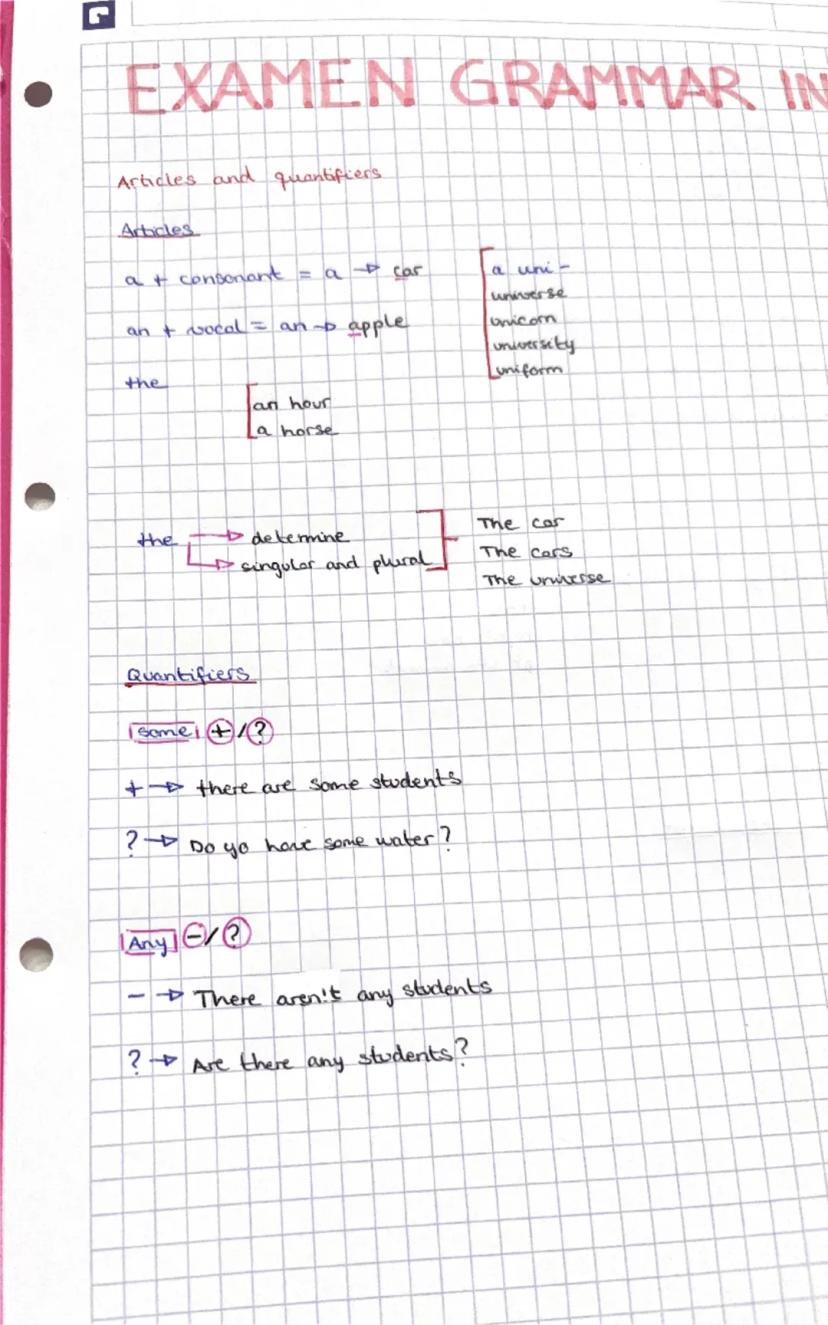 EXAMEN GRAMMAR IN
Articles and quantifiers
Articles
a + consonant = a → car
an + vocal = an → apple
the
a uni-
universe
unicorn
university
uniform
an hour
a horse
the → determine
→ singular and plural
The car
The cars
The universe
Quantifiers
some + / ?
+ → there are some students
? → Do yo have some water?
Any - / ?
- → There aren't any students
? → Are there any students?